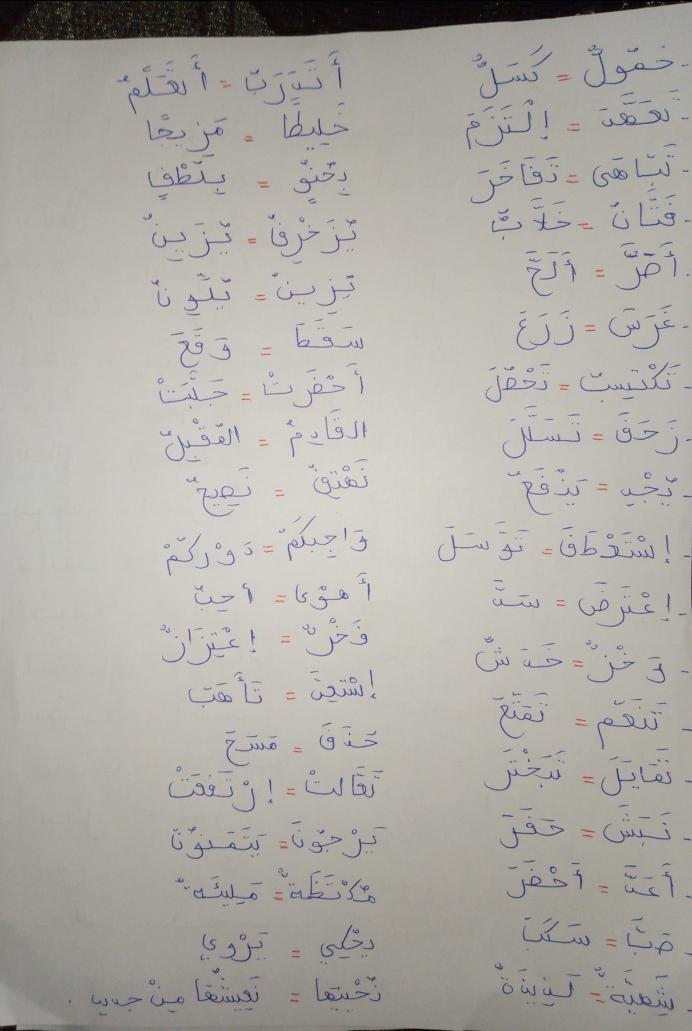 - خُمُولٌ = كَسَلٌ
- تَعَهَّدَ = اِلْتَزَمَ
- تَبَاهَى = تَفَاخَرَ
- فَتَّانٌ = خَلَّابٌ
- أَصَرَّ = أَلَحَّ
- غَرَسَ = زَرَعَ
- تَكْتَسِبُ = تَحْصُلَ
- زَحَفَ = تَسَلَّلَ
- يُجْدِي = يَنْفَعُ
- إِسْتَعْطَفَ = تَوَسَّلَ
- إِعْتَرَضَ = سَدَّ
- وَخْزٌ = خَدْشٌ
- تَنَعَّم = تَمَتَّعَ
- تَمَايَلَ = تَبَخْتَرَ
- نَبَشَ = حَفَرَ
- أَعَدَّ = أَحْضَرَ
- صَبَّ = سَكَبَ
- شَهِيَّةٌ = لَذِيذَةٌ
أَتَدَرَّبُ = أَتَعَلَّمُ
خَلِيطًا = مَزِيجًا
بِحُنُوٍّ = بِلُطْفٍ
يُزَخْرِفُ = يُزَيِّنُ
يُزَيِّنُ = يُلَوِّنُ
سَقَطَ = وَقَعَ
أَحْضَرَتْ = جَلَبَتْ
القَادِمُ = المُقْبِلُ
نَهْتِفُ = نَصِيحُ
وَاجِبُكُمْ = دَوْرُكُمْ
أَهْوَى = أُحِبُّ
فَخْرٌ = إِعْتِزَازٌ
إِسْتَعِدَّ = تَأَهَّبَ
حَذَفَ = مَسَحَ
تَعَالَتْ = إِرْتَفَعَتْ
يَرْجُونَ = يَتَمَنَّوْنَ
مُكْتَظَّةٌ = مَلِيئَةٌ
يَحْكِي = يَرْوِي
نُحْيِيهَا = نَعِيشُهَا مِنْ جديد .